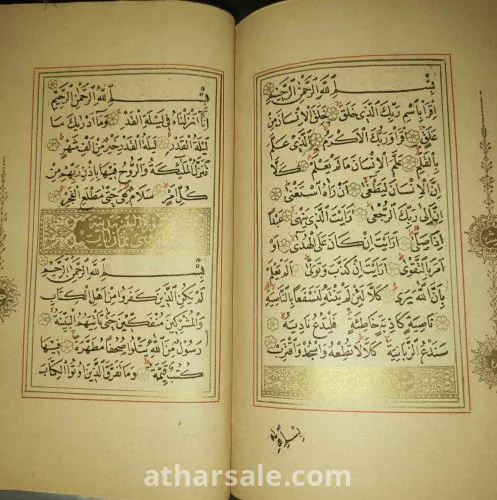 بسم الله الرحمن الرحيم
اقرأ باسم ربك الذي خلق خلق الانسان من
علق اقرأ وربك الاكرم الذي علم
بالقلم علم الانسان ما لم يعلم كلا
ان الانسان ليطغى ان راه استغنى
ان الى ربك الرجعى ارايت الذي ينهى عبدا
اذا صلى ارايت ان كان على الهدى او
امر بالتقوى ارايت ان كذب وتولى الم يعلم
بان الله يرى كلا لئن لم ينته لنسفعا بالناصية
ناصية كاذبة خاطئة فليدع ناديه
سندع الزبانية كلا لا تطعه واسجد واقترب
بسم الله الرحمن الرحيم
انا انزلناه في ليلة القدر وما ادريك ما
ليلة القدر ليلة القدر خير من الف شهر
تنزل الملئكة والروح فيها باذن ربهم من
كل امر سلام هي حتى مطلع الفجر
بسم الله الرحمن الرحيم
لم يكن الذين كفروا من اهل الكتاب
والمشركين منفكين حتى تأتيهم البينة
رسول من الله يتلوا صحفا مطهرة فيها
كتب قيمة وما تفرق الذين اوتوا الكتاب
atharsale.com